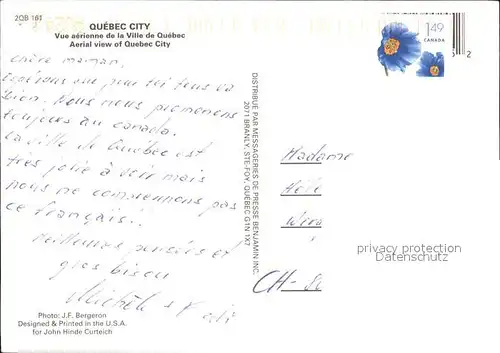 2QB 161
QUÉBEC CITY
Vue aérienne de la Ville de Québec
Aerial view of Quebec City
chère maman,
espérons que pour toi tous va
bien. Nous nous promenons
toujours au canada.
La ville de Québec est
très jolie à voir mais
nous ne comprennons pas
ce français..
Meilleures pensées et
gros bisou
Michèle +
Photo: J.F. Bergeron
Designed & Printed in the U.S.A.
for John Hinde Curteich
DISTRIBUÉ PAR MESSAGERIES DE PRESSE BENJAMIN INC.
2071 BRANLY, STE-FOY, QUÉBEC G1N 1X7
1.49
CANADA
2
Madame
CH-
privacy protection
oldthing.com